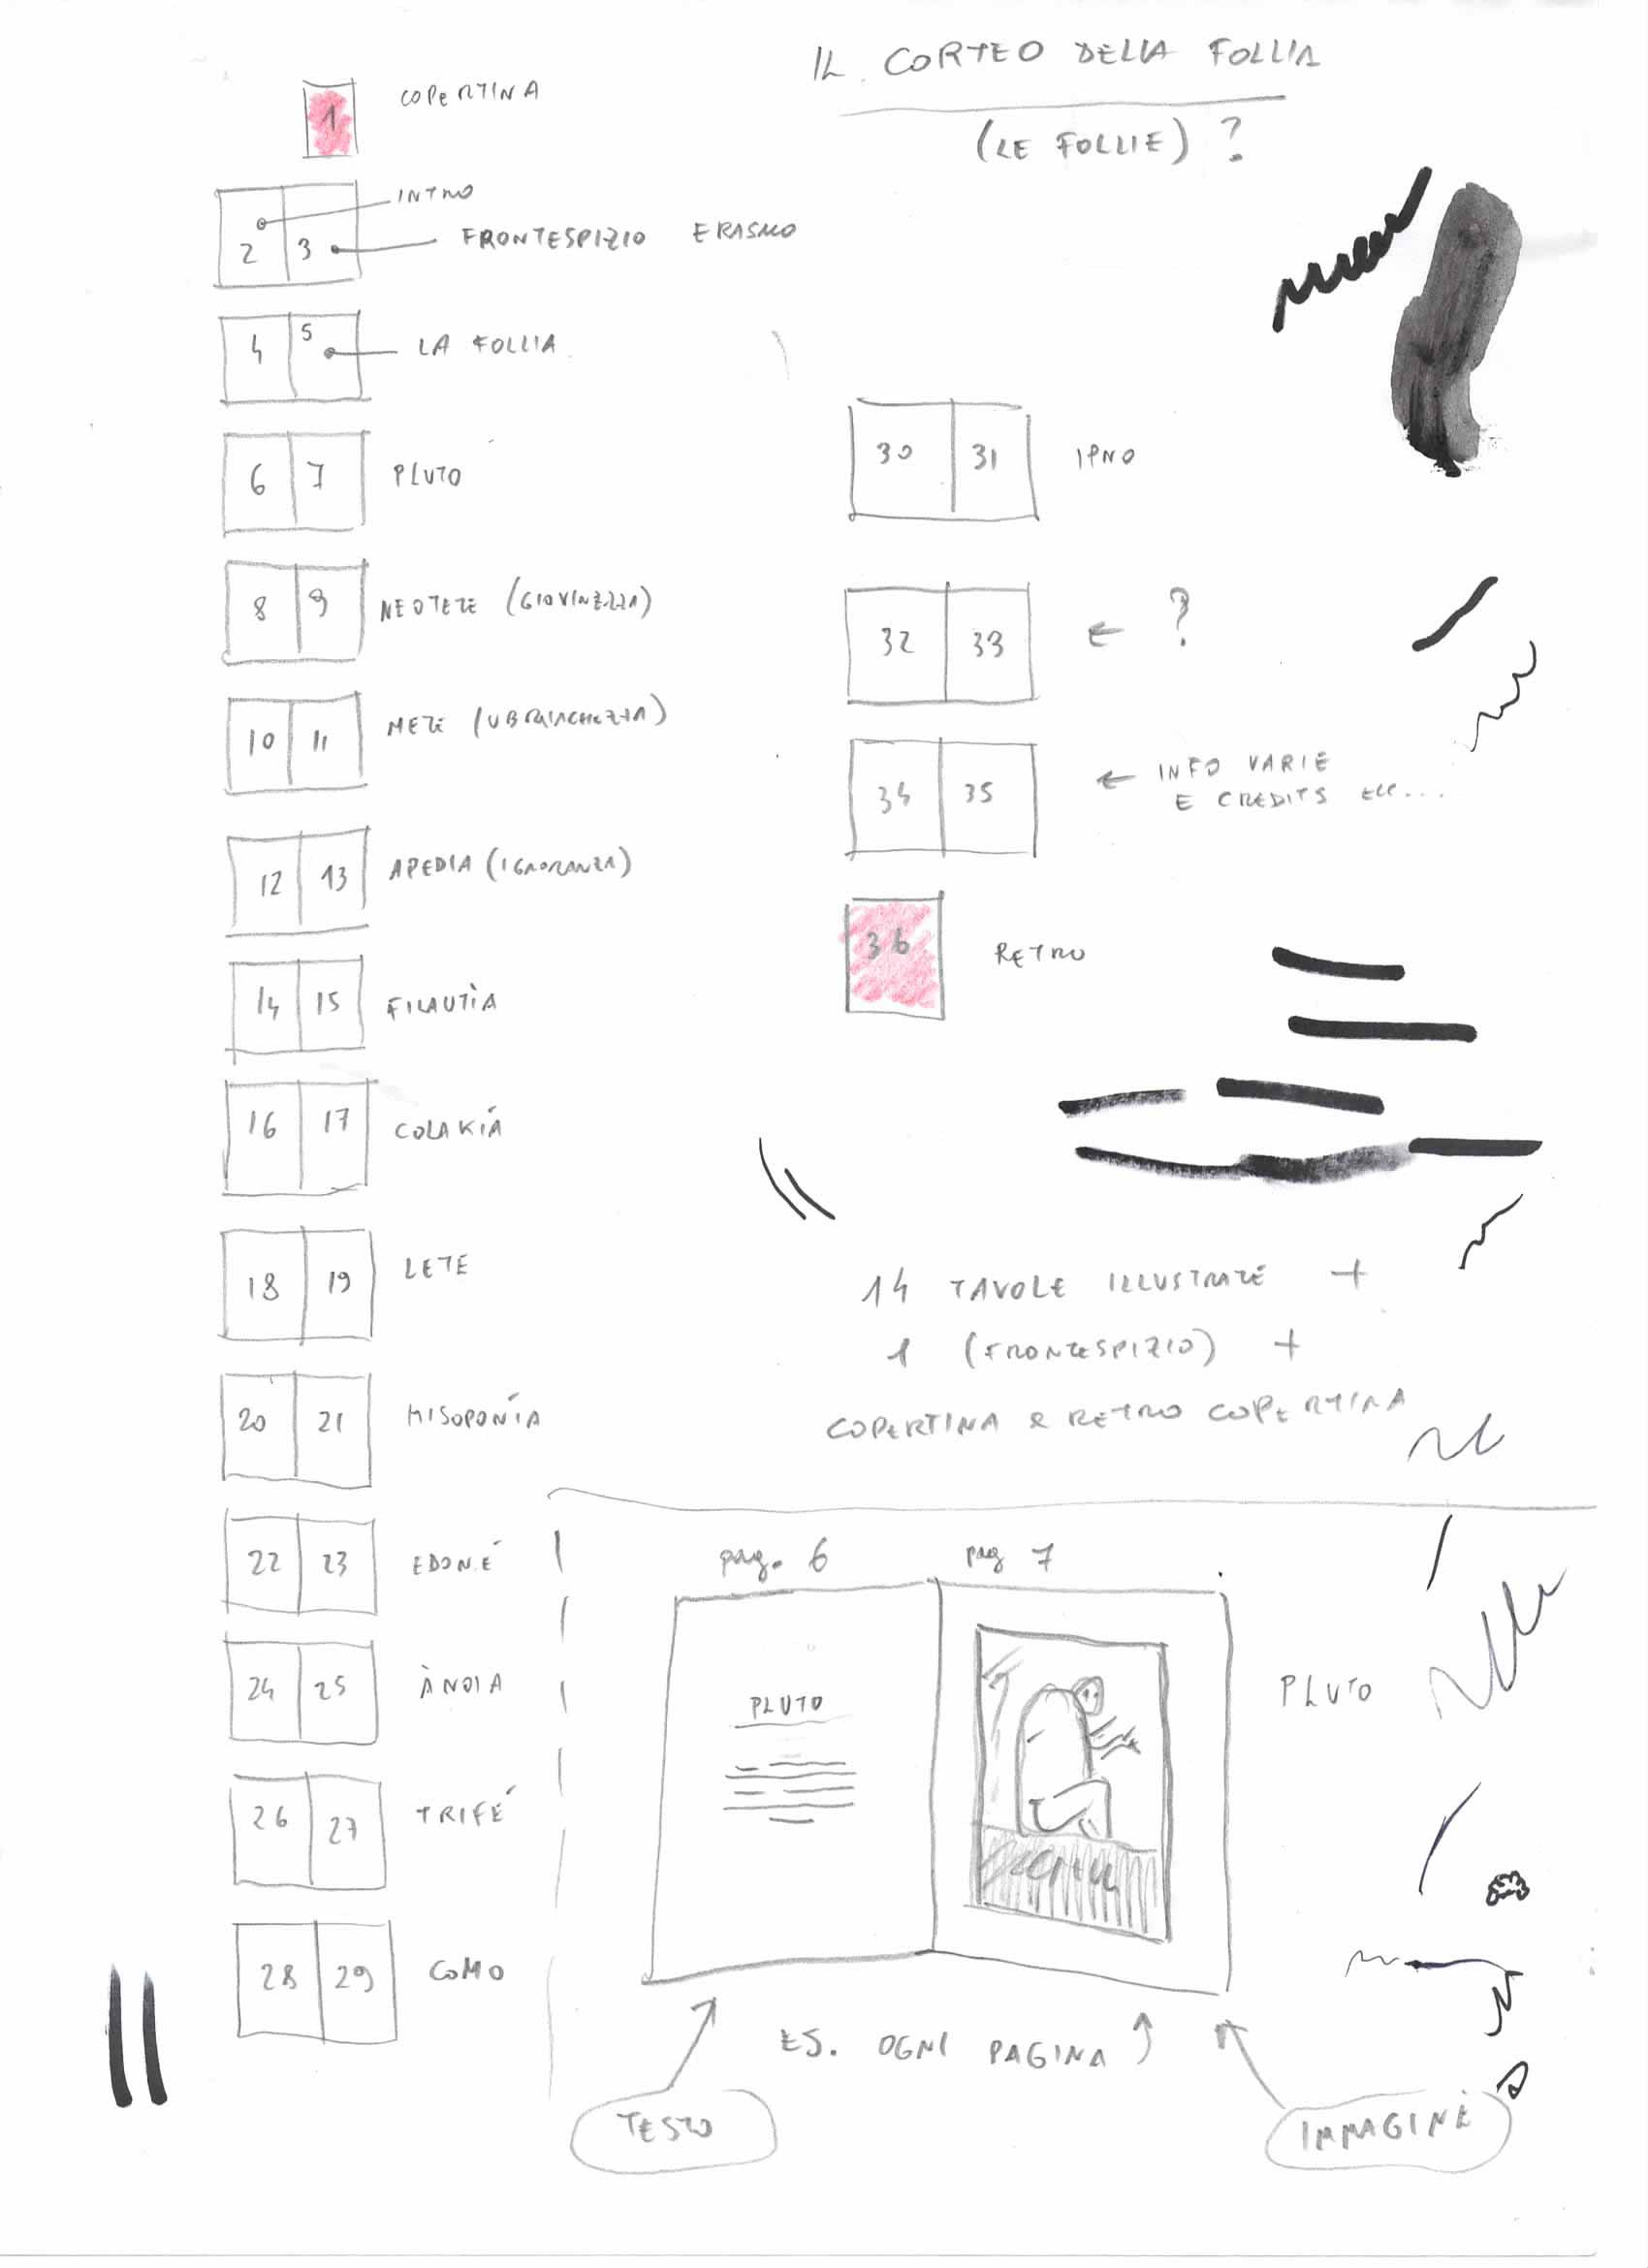 IL CORTEO DELLA FOLLIA
(LE FOLLIE) ?
1 COPERTINA
INTRO
2 3 FRONTESPIZIO ERASMO
4 5 LA FOLLIA
6 7 PLUTO
8 9 NEOTETE (GIOVINEZZA)
10 11 METE (UBRIACHEZZA)
12 13 APEDIA (IGNORANZA)
14 15 FILAUTÌA
16 17 COLAKÍA
18 19 LETE
20 21 MISOPONÍA
22 23 EDONÉ
24 25 ÀNOIA
26 27 TRIFÉ
28 29 COMO
30 31 IPNO
32 33 ← ?
34 35 ← INFO VARIE
E CREDITS ECC...
36 RETRO
14 TAVOLE ILLUSTRATE +
1 (FRONTESPIZIO) +
COPERTINA & RETRO COPERTINA
pag. 6 pag 7
PLUTO
PLUTO
ES. OGNI PAGINA
TESTO
IMMAGINE